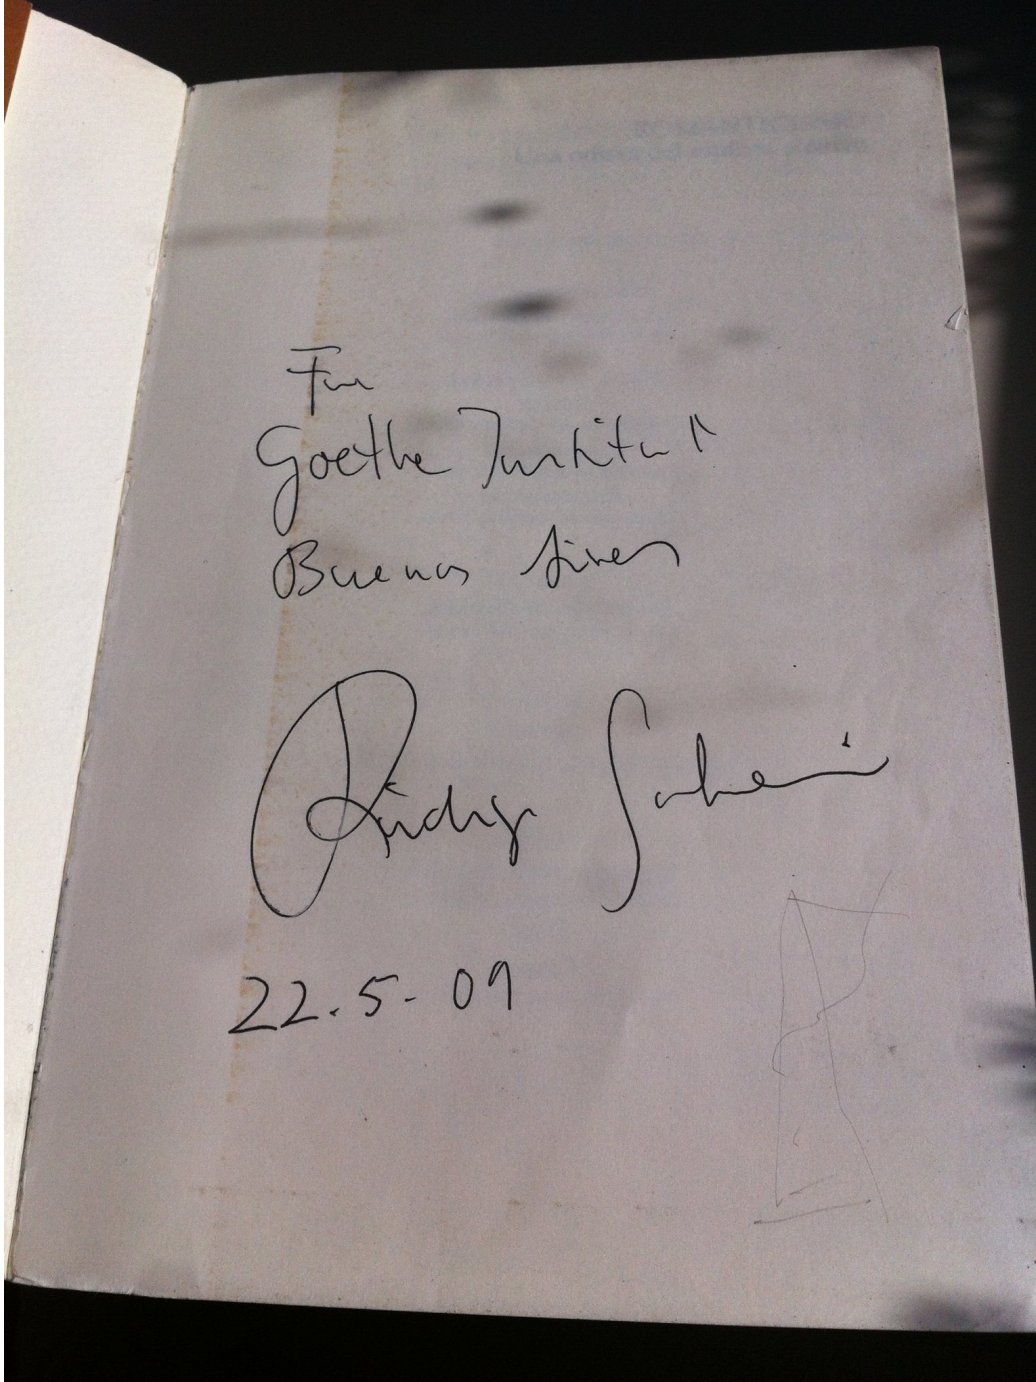 Für
Goethe Institut
Buenos Aires
Rüdiger Safranski
22.5.09